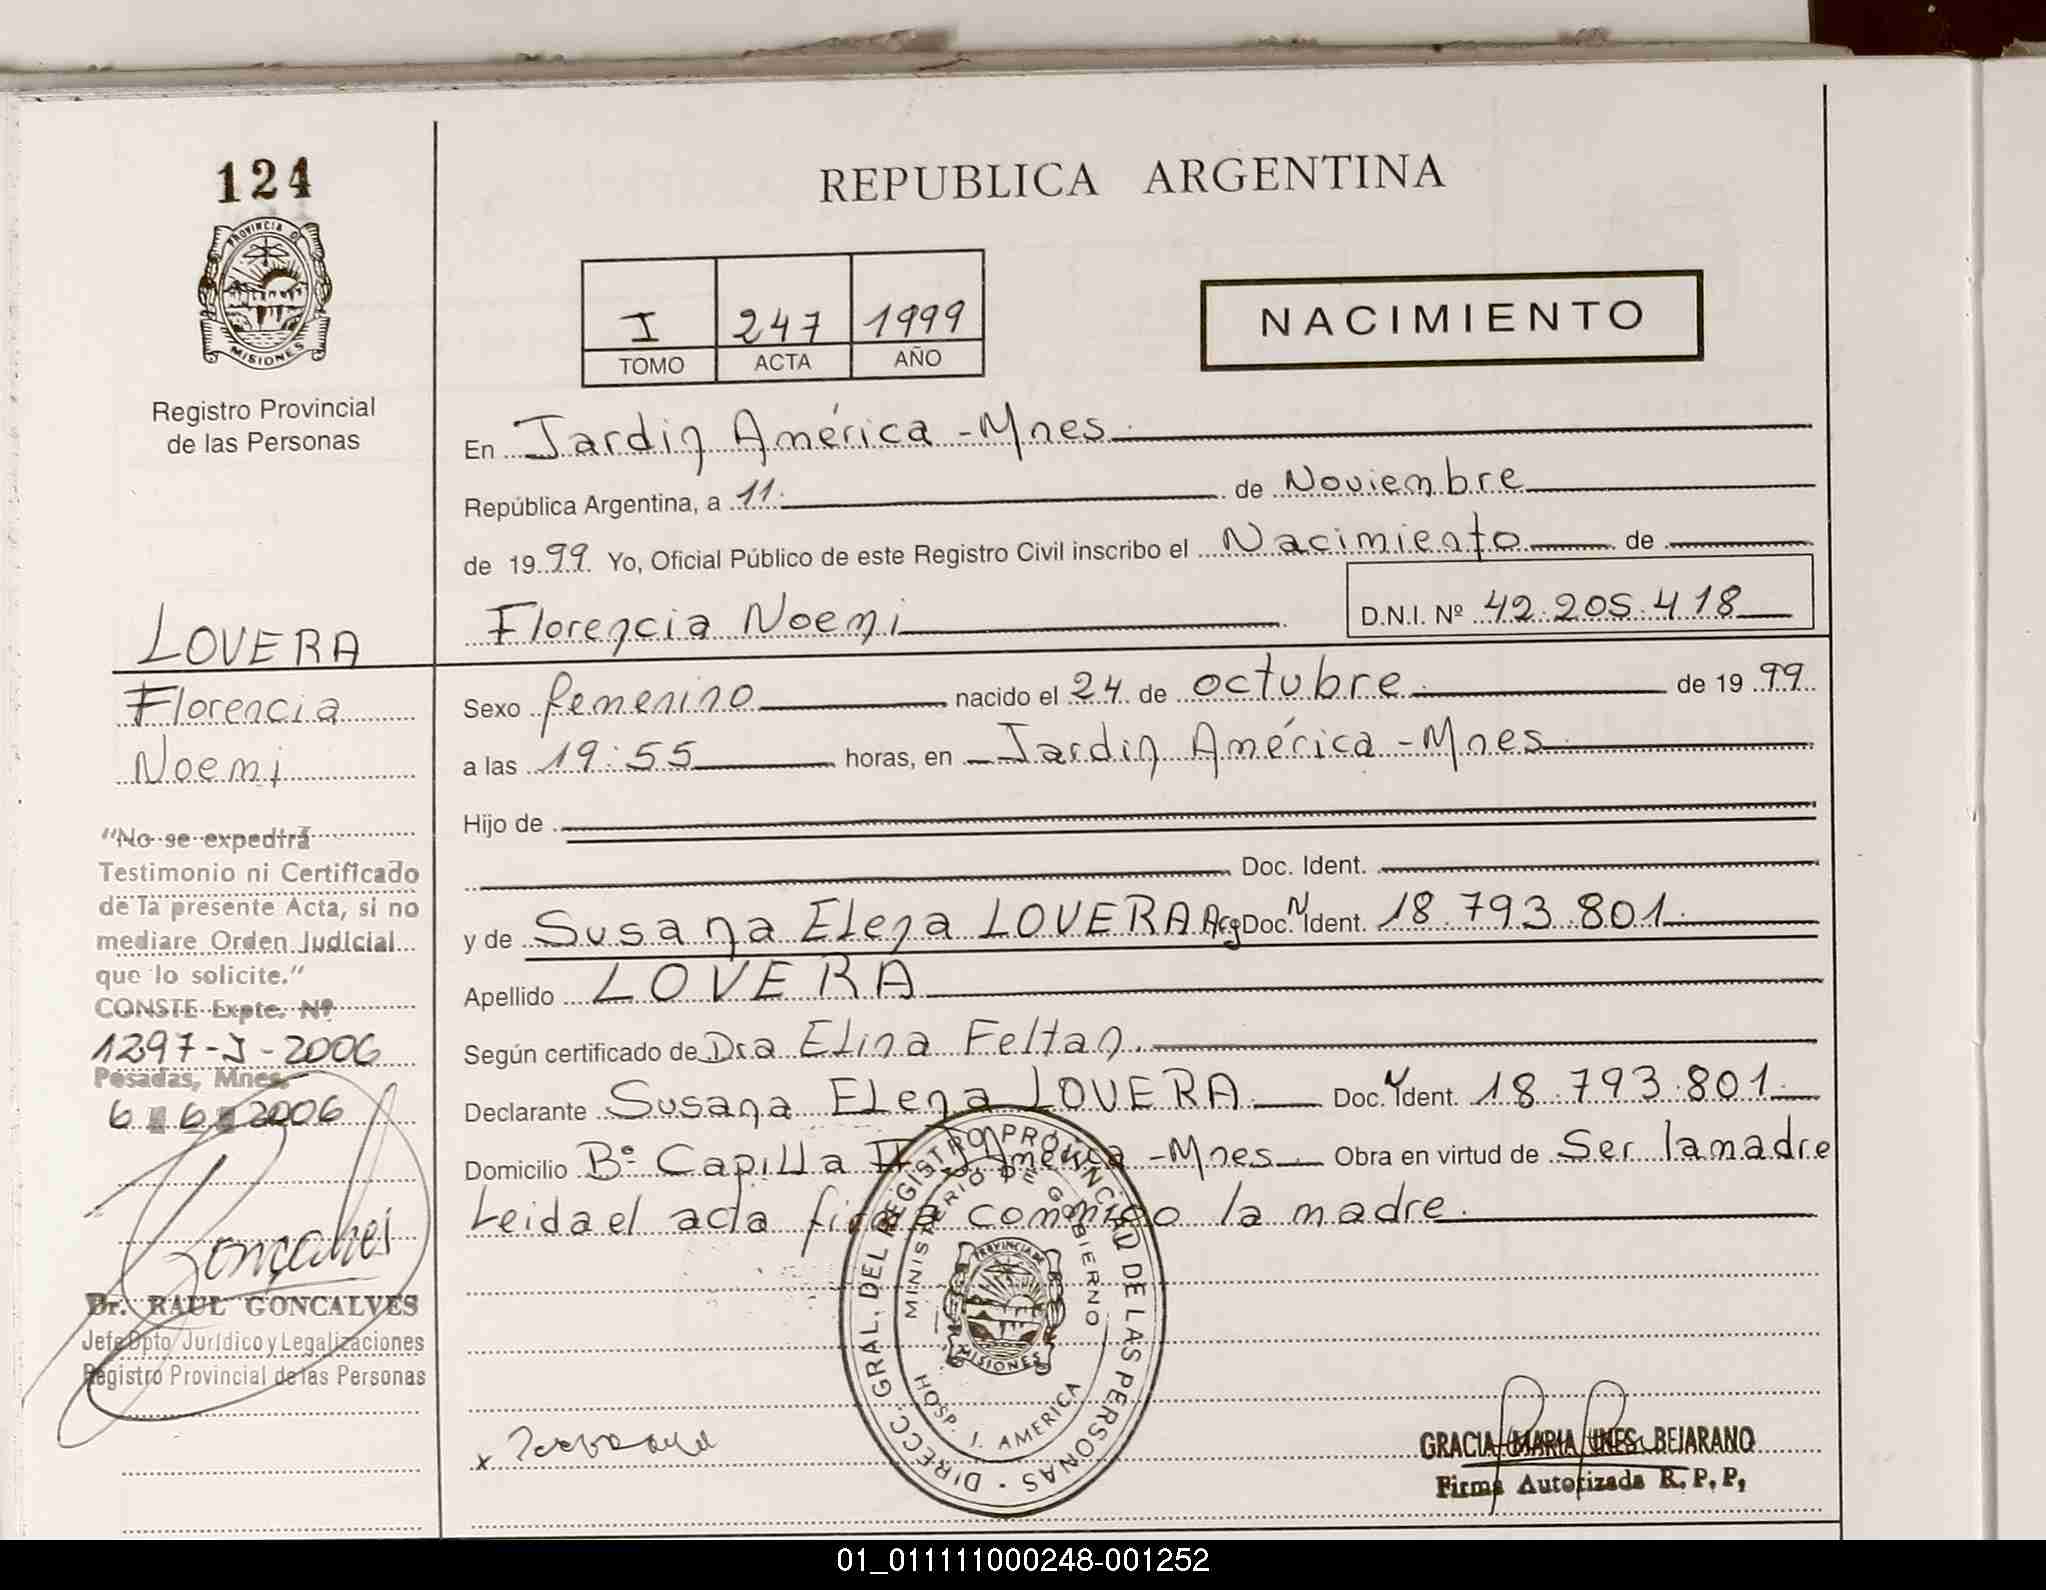 124
PROVINCIA DE
MISIONES
Registro Provincial
de las Personas
LOVERA
Florencia
Noemi
"No se expedirá
Testimonio ni Certificado
de la presente Acta, si no
mediare Orden Judicial
que lo solicite."
CONSTE Expte. Nº
1297-J-2006
Posadas, Mnes.
6 6 2006
Goncalves
Dr. RAUL GONCALVES
Jefe Dpto Jurídico y Legalizaciones
Registro Provincial de las Personas
REPUBLICA ARGENTINA
I 247 1999
TOMO ACTA AÑO
NACIMIENTO
En Jardin América - Mnes.
República Argentina, a 11 de Noviembre
de 1999 Yo, Oficial Público de este Registro Civil inscribo el Nacimiento de
Florencia Noemi D.N.I. Nº 42.205.418
Sexo femenino nacido el 24 de octubre de 1999
a las 19:55 horas, en Jardin América - Mnes
Hijo de
Doc. Ident.
y de Susana Elena LOVERA Arg Doc. N Ident. 18.793.801
Apellido LOVERA
Según certificado de Dra Elina Feltan.
Declarante Susana Elena LOVERA Doc. Ident. 18.793.801
Domicilio Bº Capilla II J. América - Mnes Obra en virtud de Ser la madre
Leida el acta firma conmigo la madre.
DIRECC. GRAL. DEL REGISTRO PROVINCIAL DE LAS PERSONAS
MINISTERIO DE GOBIERNO
PROVINCIA DE
MISIONES
HOSP. J. AMERICA
x
GRACIA MARIA INES BEJARANO
Firma Autorizada R. P. P,
01_011111000248-001252